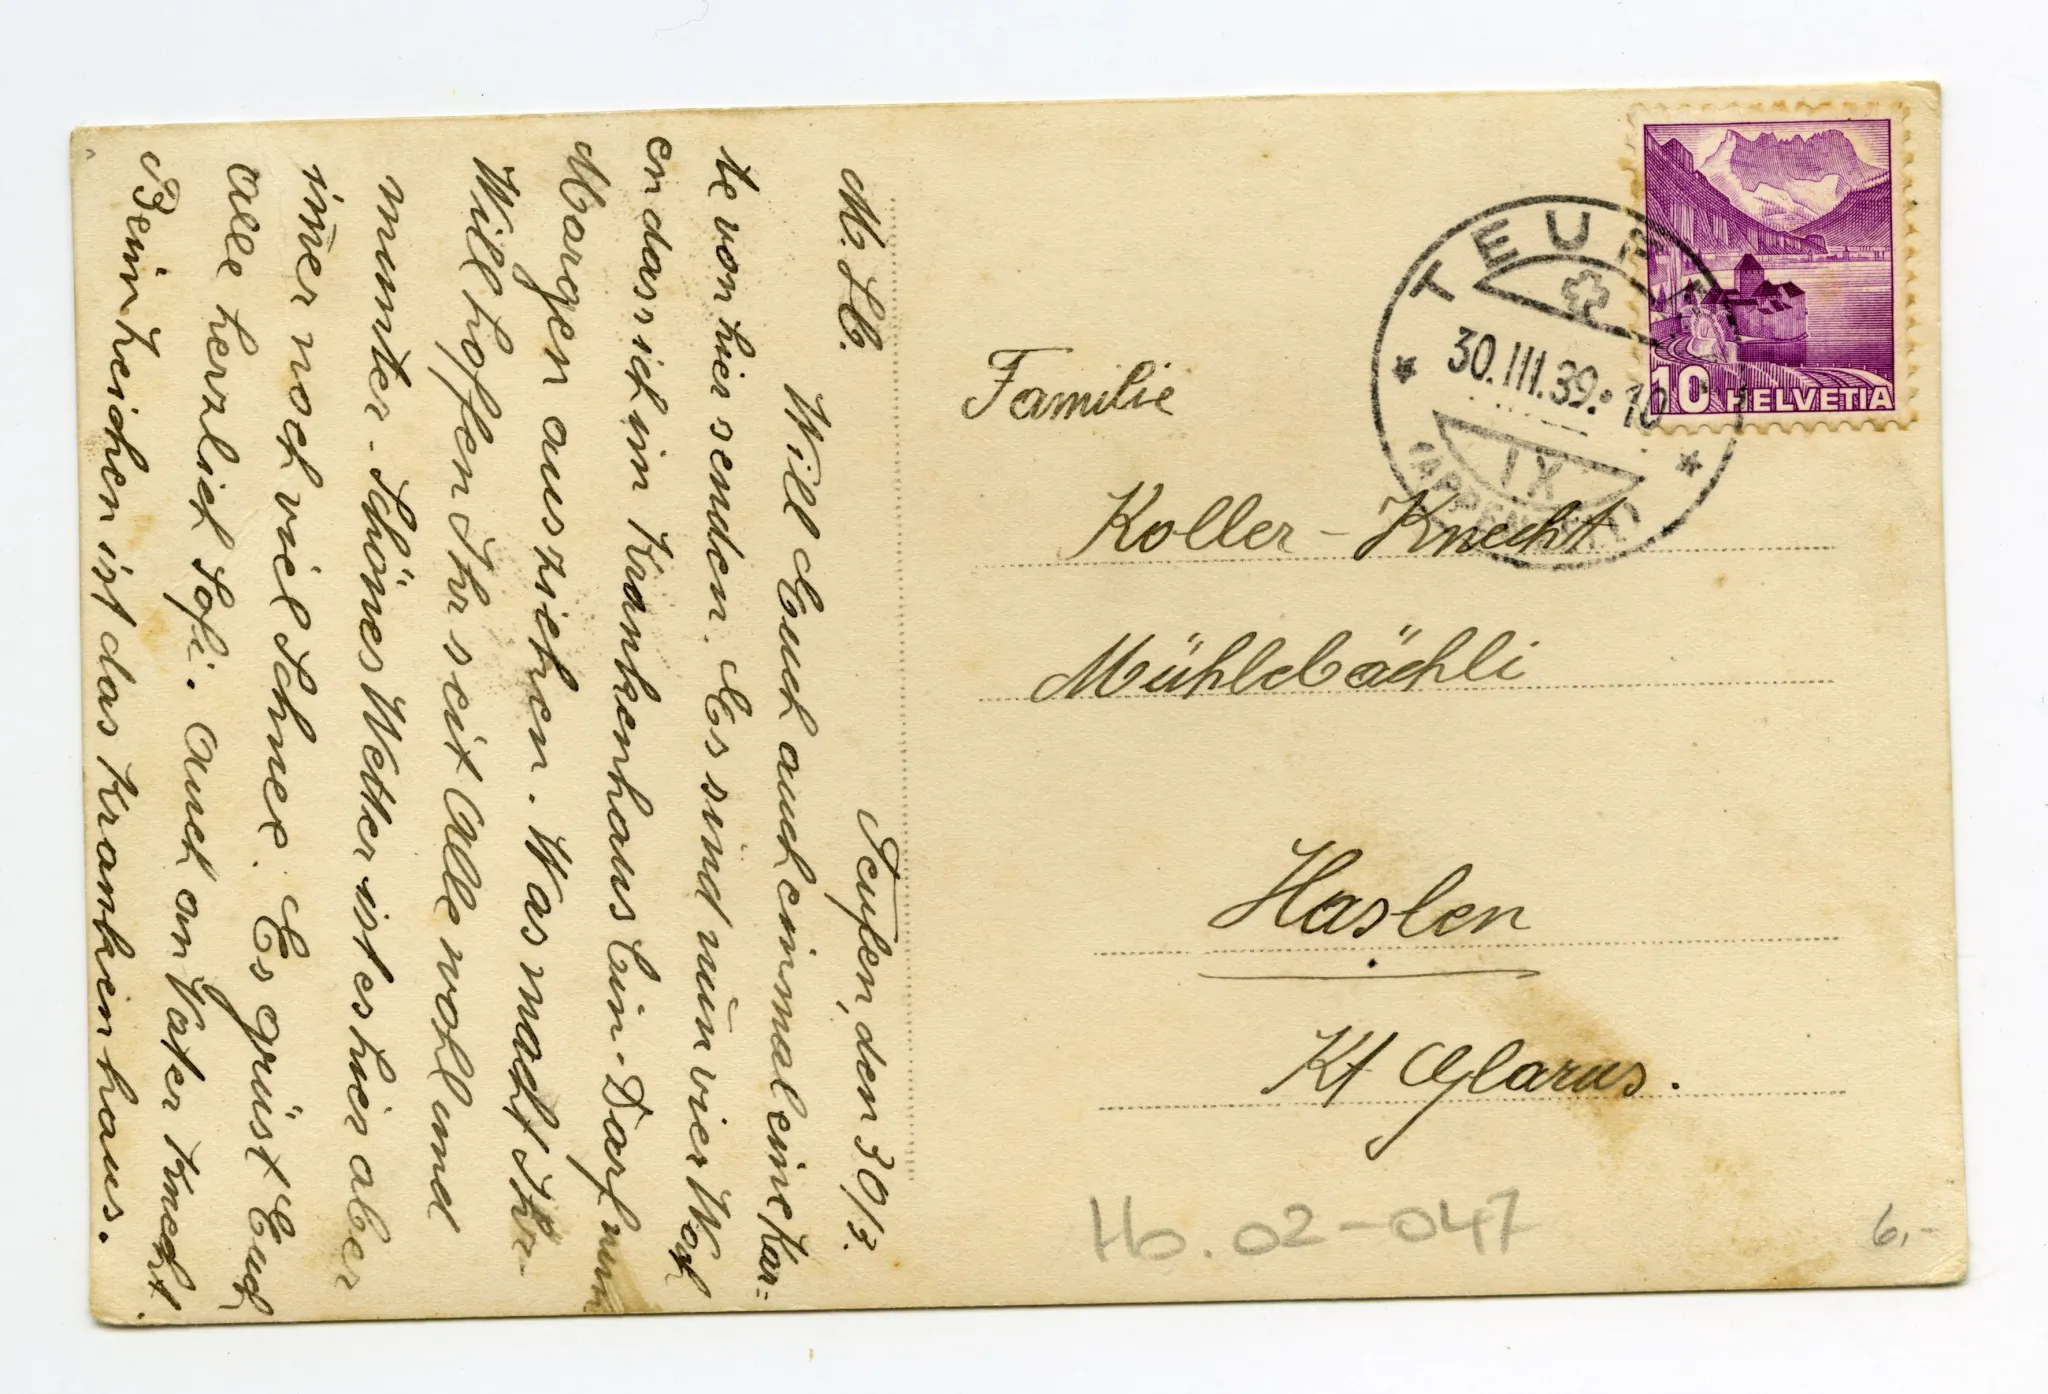 Teufen, den 30/3.
M. Lb.
Will Euch auch einmal eine Kar=
te von hier senden. Es sind nun vier Woch
en dass ich im Krankenhaus bin. Darf nun
Morgen ausziehen. Was macht Ihr
Will hoffen Ihr seit Alle wohl und
munter. Schönes Wetter ist es hier aber
im̄er noch viel Schnee. Es grüsst Euch
alle herzlich Sofi. Auch an Vater Knecht.
Beim Zeichen ist das Krankenhaus.
TEUFEN
30.III.39.-10
IX
(APPENZELL)
10 HELVETIA
Familie
Koller-Knecht
Mühlebächli
Haslen
Kt Glarus.
Hb. 02-047
6.-